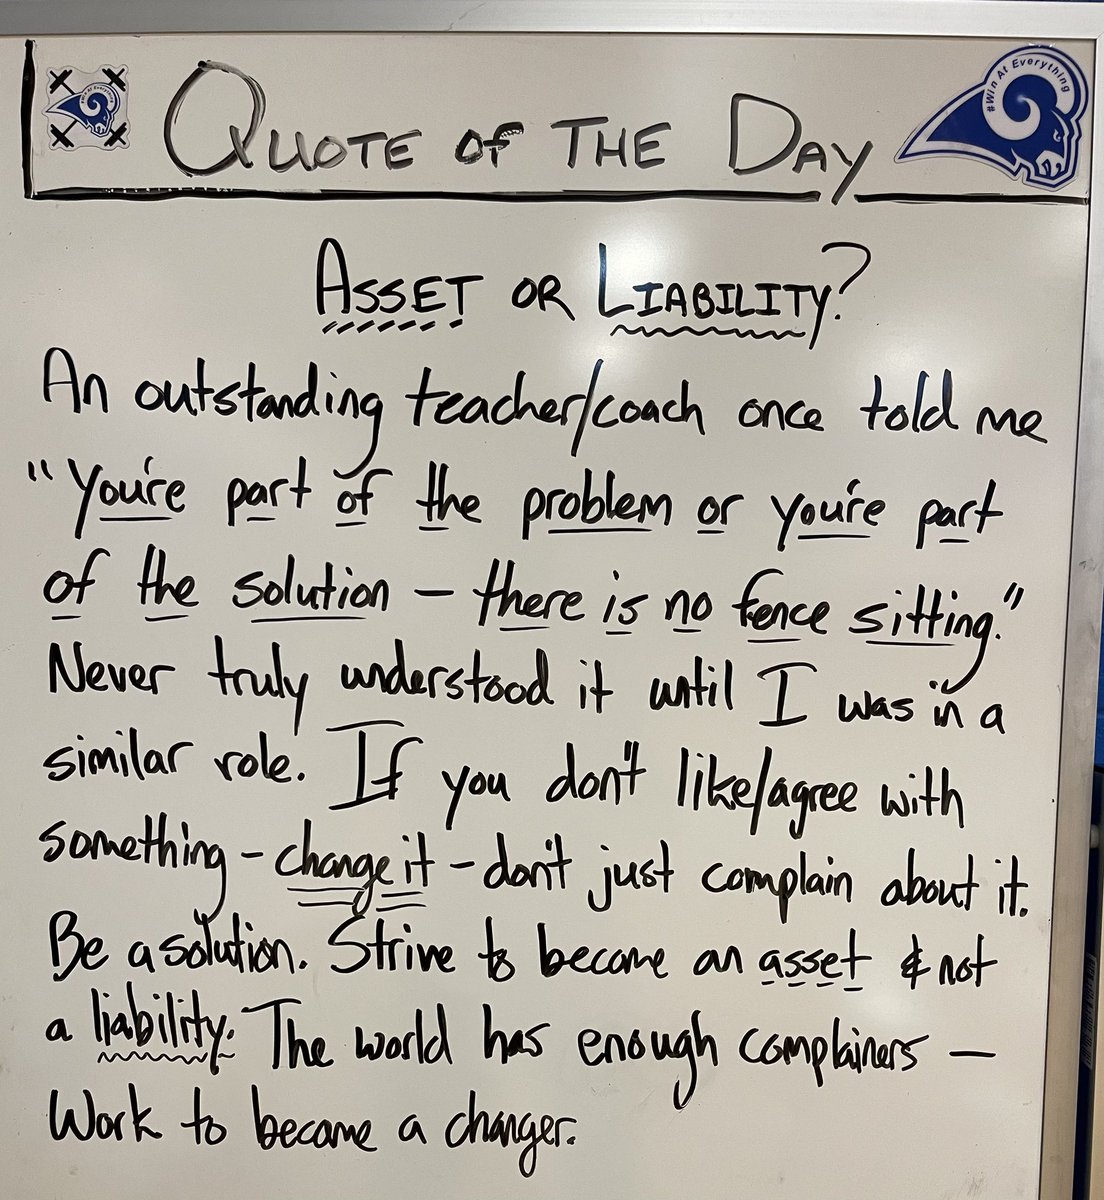 QUOTE OF THE DAY
#Win At Everything
ASSET OR LIABILITY?
An outstanding teacher/coach once told me
"You're part of the problem or you're part
of the solution – there is no fence sitting."
Never truly understood it until I was in a
similar role. If you don't like/agree with
something – change it – don't just complain about it.
Be a solution. Strive to become an asset & not
a liability. The world has enough complainers –
Work to become a changer.